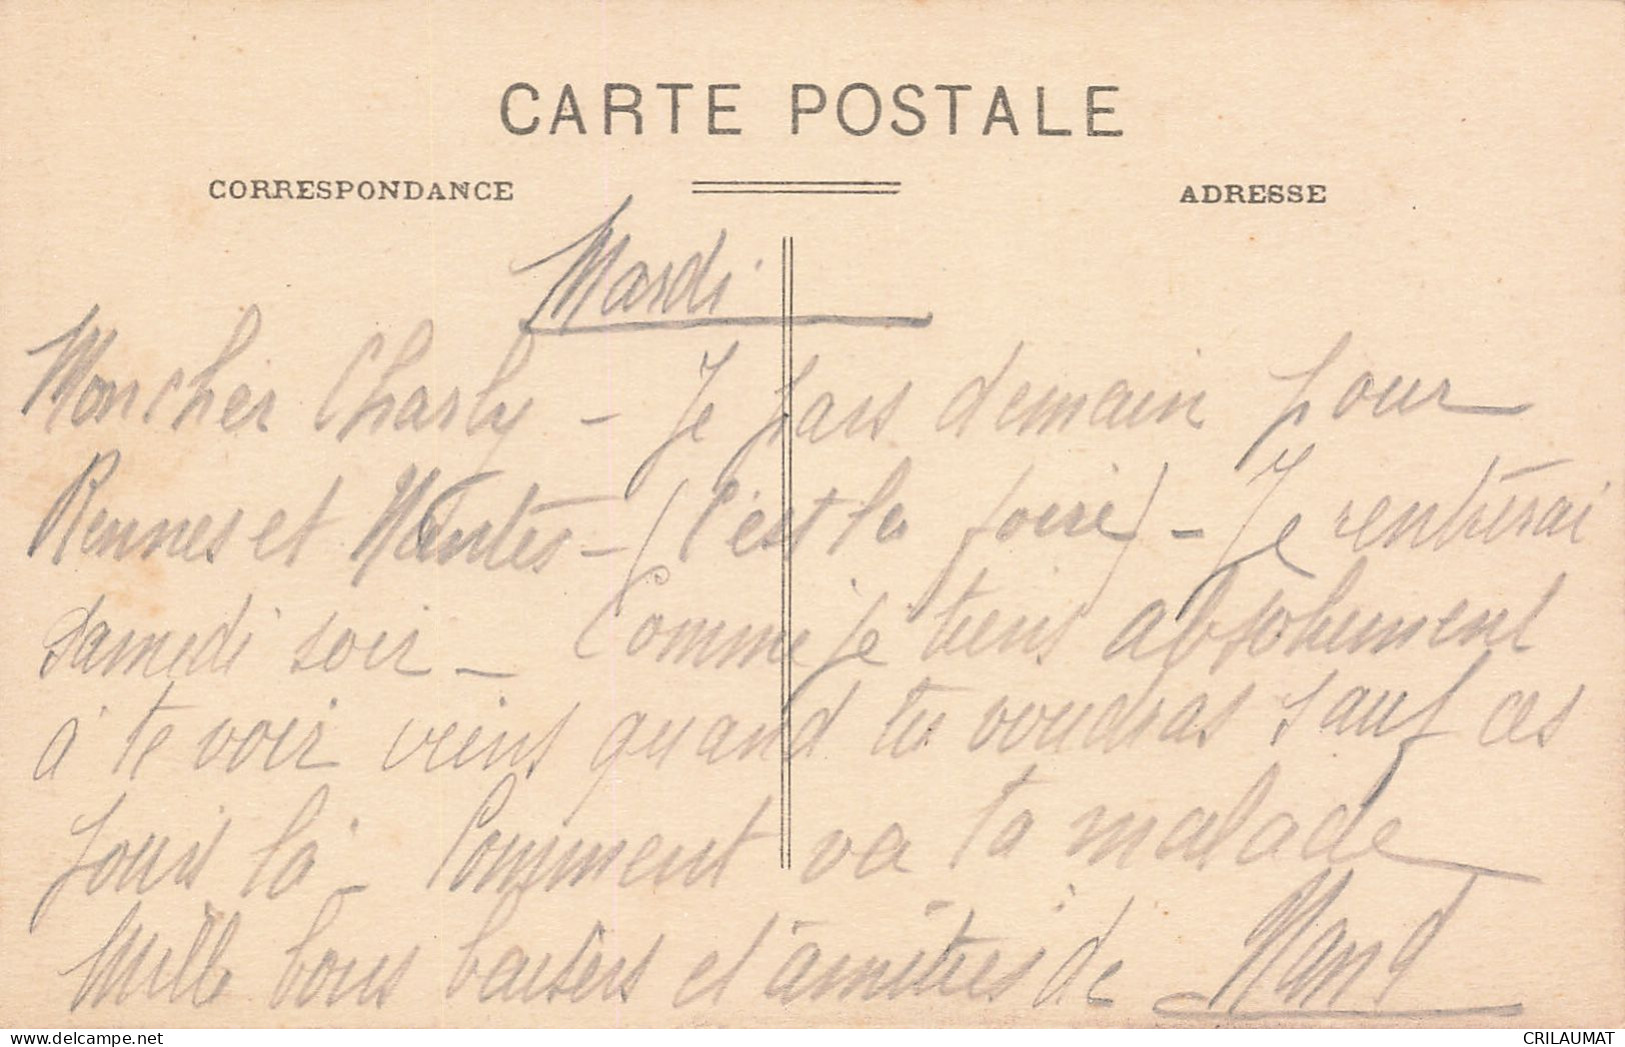 CARTE POSTALE
CORRESPONDANCE
ADRESSE
Mardi
Mon cher Charly – Je pars demain pour
Rennes et Nantes – (C'est la foire) – Je rentrerai
Samedi soir – Comme je tiens absolument
à te voir viens quand tu voudras sauf ces
jours là – Comment va ta malade
Mille bons baisers et d'amitiés de
CRILAUMAT